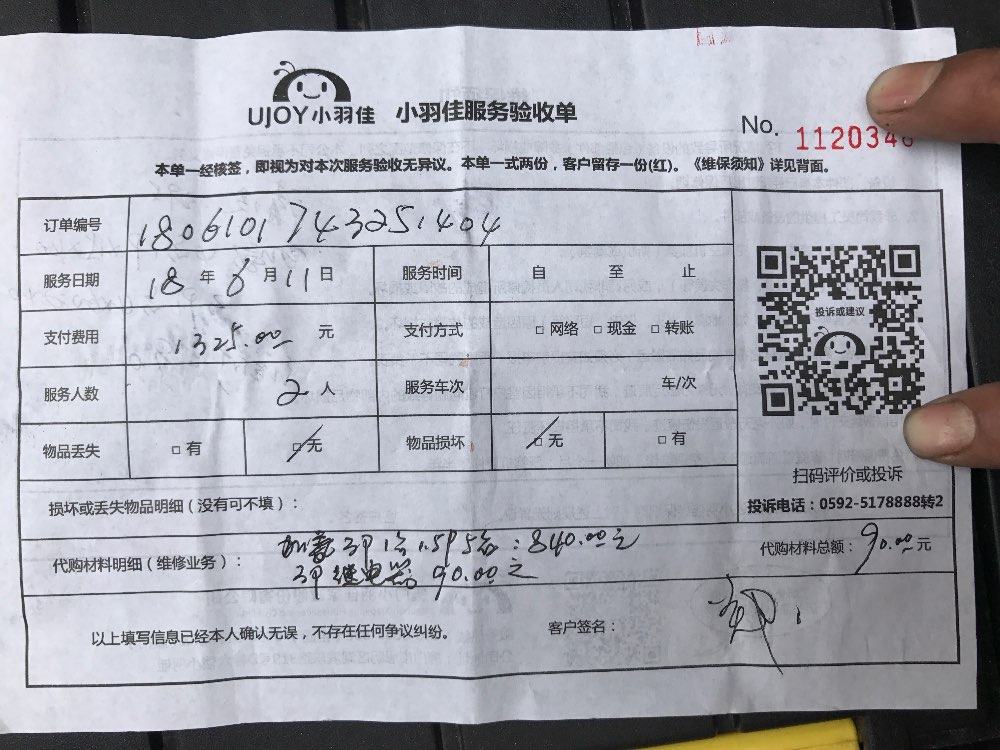 UJOY小羽佳 小羽佳服务验收单
No. 112034
本单一经核签，即视为对本次服务验收无异议。本单一式两份，客户留存一份(红)。《维保须知》详见背面。
订单编号 1806101743251404
服务日期 18 年 6 月 11 日 服务时间 自 至 止
支付费用 1325.00 元 支付方式 □ 网络 □ 现金 □ 转账
服务人数 2 人 服务车次 车/次
物品丢失 □ 有 □ 无 物品损坏 □ 无 □ 有
投诉或建议
扫码评价或投诉
投诉电话：0592-5178888转2
损坏或丢失物品明细（没有可不填）：
代购材料明细（维修业务）： 加氟3P1台1.5P5台：840.00元
3P继电器 90.00元
代购材料总额： 90.00 元
以上填写信息已经本人确认无误，不存在任何争议纠纷。 客户签名：